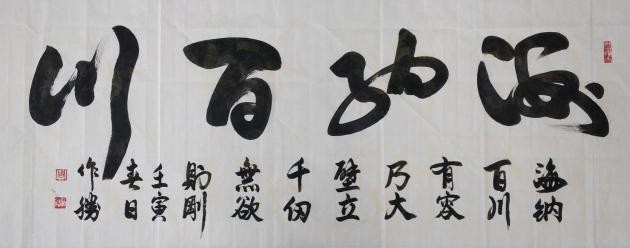 海纳百川
海纳
百川
有容
乃大
壁立
千仞
無欲
則剛
壬寅
春日
作勝